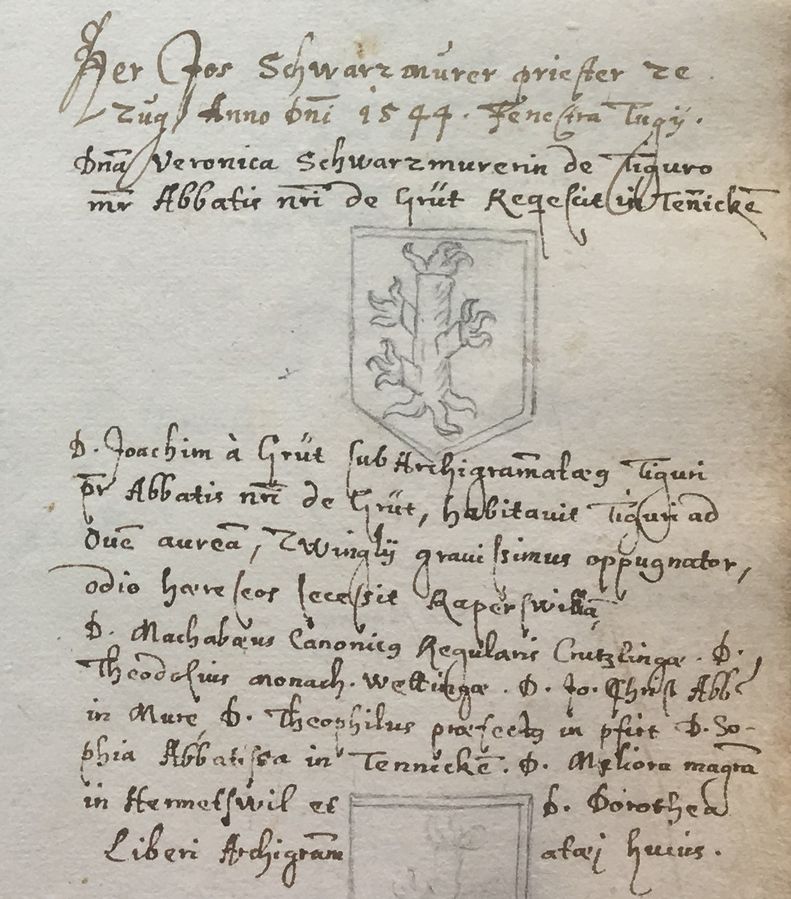 Her Jos Schwarzmürer priester ze
Zug Anno Dn̄i 1544. Fenestra Tugij.
Dn̄a Veronica Schwarzmurerin de Tiguro
mr̄ Abbatis nr̄i de Grüt Reqescit in Teñickē
D. Joachim à Grüt subArchigram̄atæg Tiguri
pr̄ Abbatis nr̄i de Grüt, habitavit Tiguri ad
Ovē aureā, Zwinglij gravissimus oppugnator,
odio hæreseos secessit Raperswillā
D. Machabæus Canonicg Regularis Crutzlingæ. D.
Theodosius monach. Wettingæ. D. Jo. Christ Abb
in Mure D. Theophilus præfectg in pfirt D. So-
phia Abbatissa in Tennickē. D. Meliora magr̄a
in Hermetswil et D. Dorothea
Liberi Archigram̄ atæi huius.